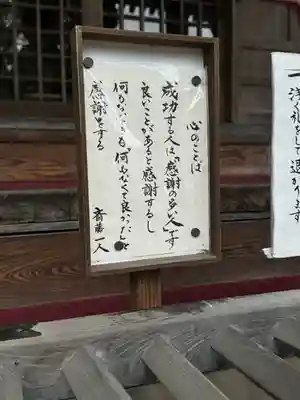 心のことは
成功する人は「感謝の多い人」です
良いことがあると感謝するし
何もなくても「何もなくて良かった」と
感謝をする
斎藤一人
一浅礼して退